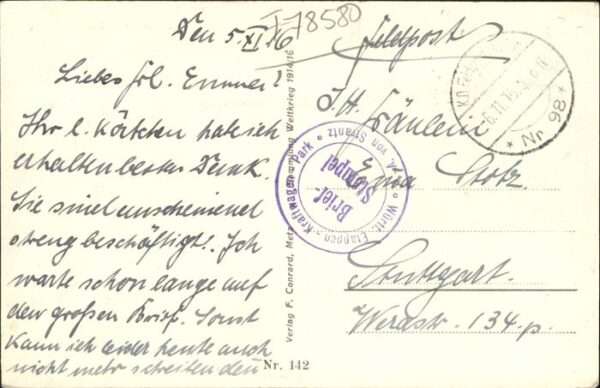 Den 5. XI 16
I-78580
Feldpost
Liebes Frl. Emmer!
Ihr l. Kärtchen habe ich
erhalten besten Dank.
Sie sind anscheinend
streng beschäftigt! Ich
warte schon lange auf
den großen Brief. Sonst
kann ich leider heute auch
nicht mehr schreiben den
Fräulein
Stotz.
Stuttgart.
Werastr. 134 p.
Nr. 98
Brief-
Stempel
Württ. Etappen-Kraftwagen-Park
von Strantz
Verlag F. Conrard, Metz
Weltkrieg 1914/16
Nr. 142